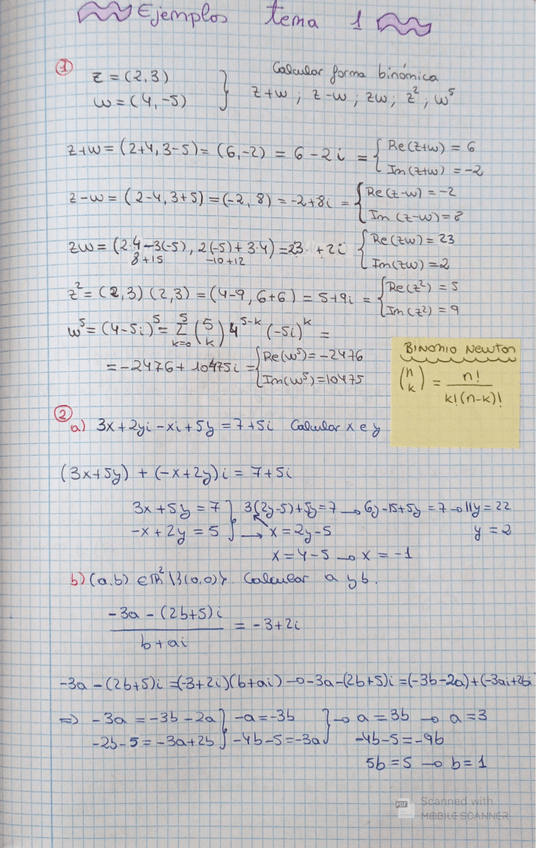 Ejemplos tema 1
① z = (2,3)
w = (4,-5) } Calcular forma binómica
z+w ; z-w ; zw ; z² ; w⁵
z+w = (2+4, 3-5) = (6,-2) = 6-2i = { Re(z+w) = 6
Im(z+w) = -2
z-w = (2-4, 3+5) = (-2, 8) = -2+8i = { Re(z-w) = -2
Im(z-w) = 8
zw = (2·4-3(-5), 2(-5)+3·4) = 23 + 2i { Re(zw) = 23
8+15 -10+12 Im(zw) = 2
z² = (2,3)(2,3) = (4-9, 6+6) = 5+9i = { Re(z²) = 5
Im(z²) = 9
w⁵ = (4-5i)⁵ = Σ⁵ₖ₌₀ (5 k) 4⁵⁻ᵏ (-5i)ᵏ =
= -2476 + 10475i = { Re(w⁵) = -2476
Im(w⁵) = 10475
Binomio Newton
(n k) = n! / k!(n-k)!
② a) 3x+2yi-xi+5y = 7+5i Calcular x e y
(3x+5y) + (-x+2y)i = 7+5i
3x+5y = 7 } 3(2y-5)+5y = 7 → 6y-15+5y = 7 → 11y = 22
-x+2y = 5 } → x = 2y-5 y = 2
x = 4-5 → x = -1
b) (a,b) ∈ ℝ² \ {(0,0)} Calcular a y b.
-3a - (2b+5)i / b+ai = -3+2i
-3a-(2b+5)i = (-3+2i)(b+ai) → -3a-(2b+5)i = (-3b-2a)+(-3ai+2bi
⇒ -3a = -3b-2a } -a = -3b } → a = 3b → a = 3
-2b-5 = -3a+2b } -4b-5 = -3a } -4b-5 = -9b
5b = 5 → b = 1
Scanned with
MOBILE SCANNER